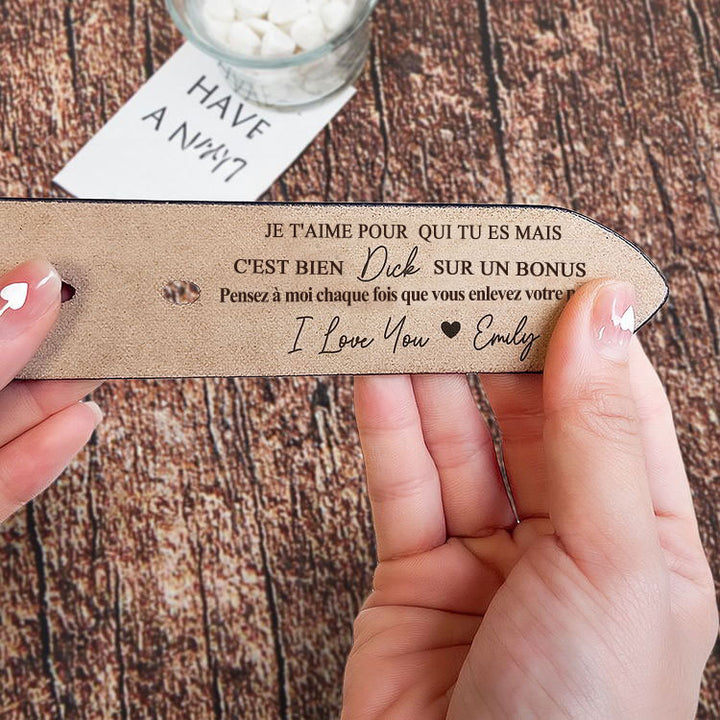 HAVE
A
JE T'AIME POUR QUI TU ES MAIS
C'EST BIEN Dick SUR UN BONUS
Pensez à moi chaque fois que vous enlevez votre
I Love You ♥ Emily